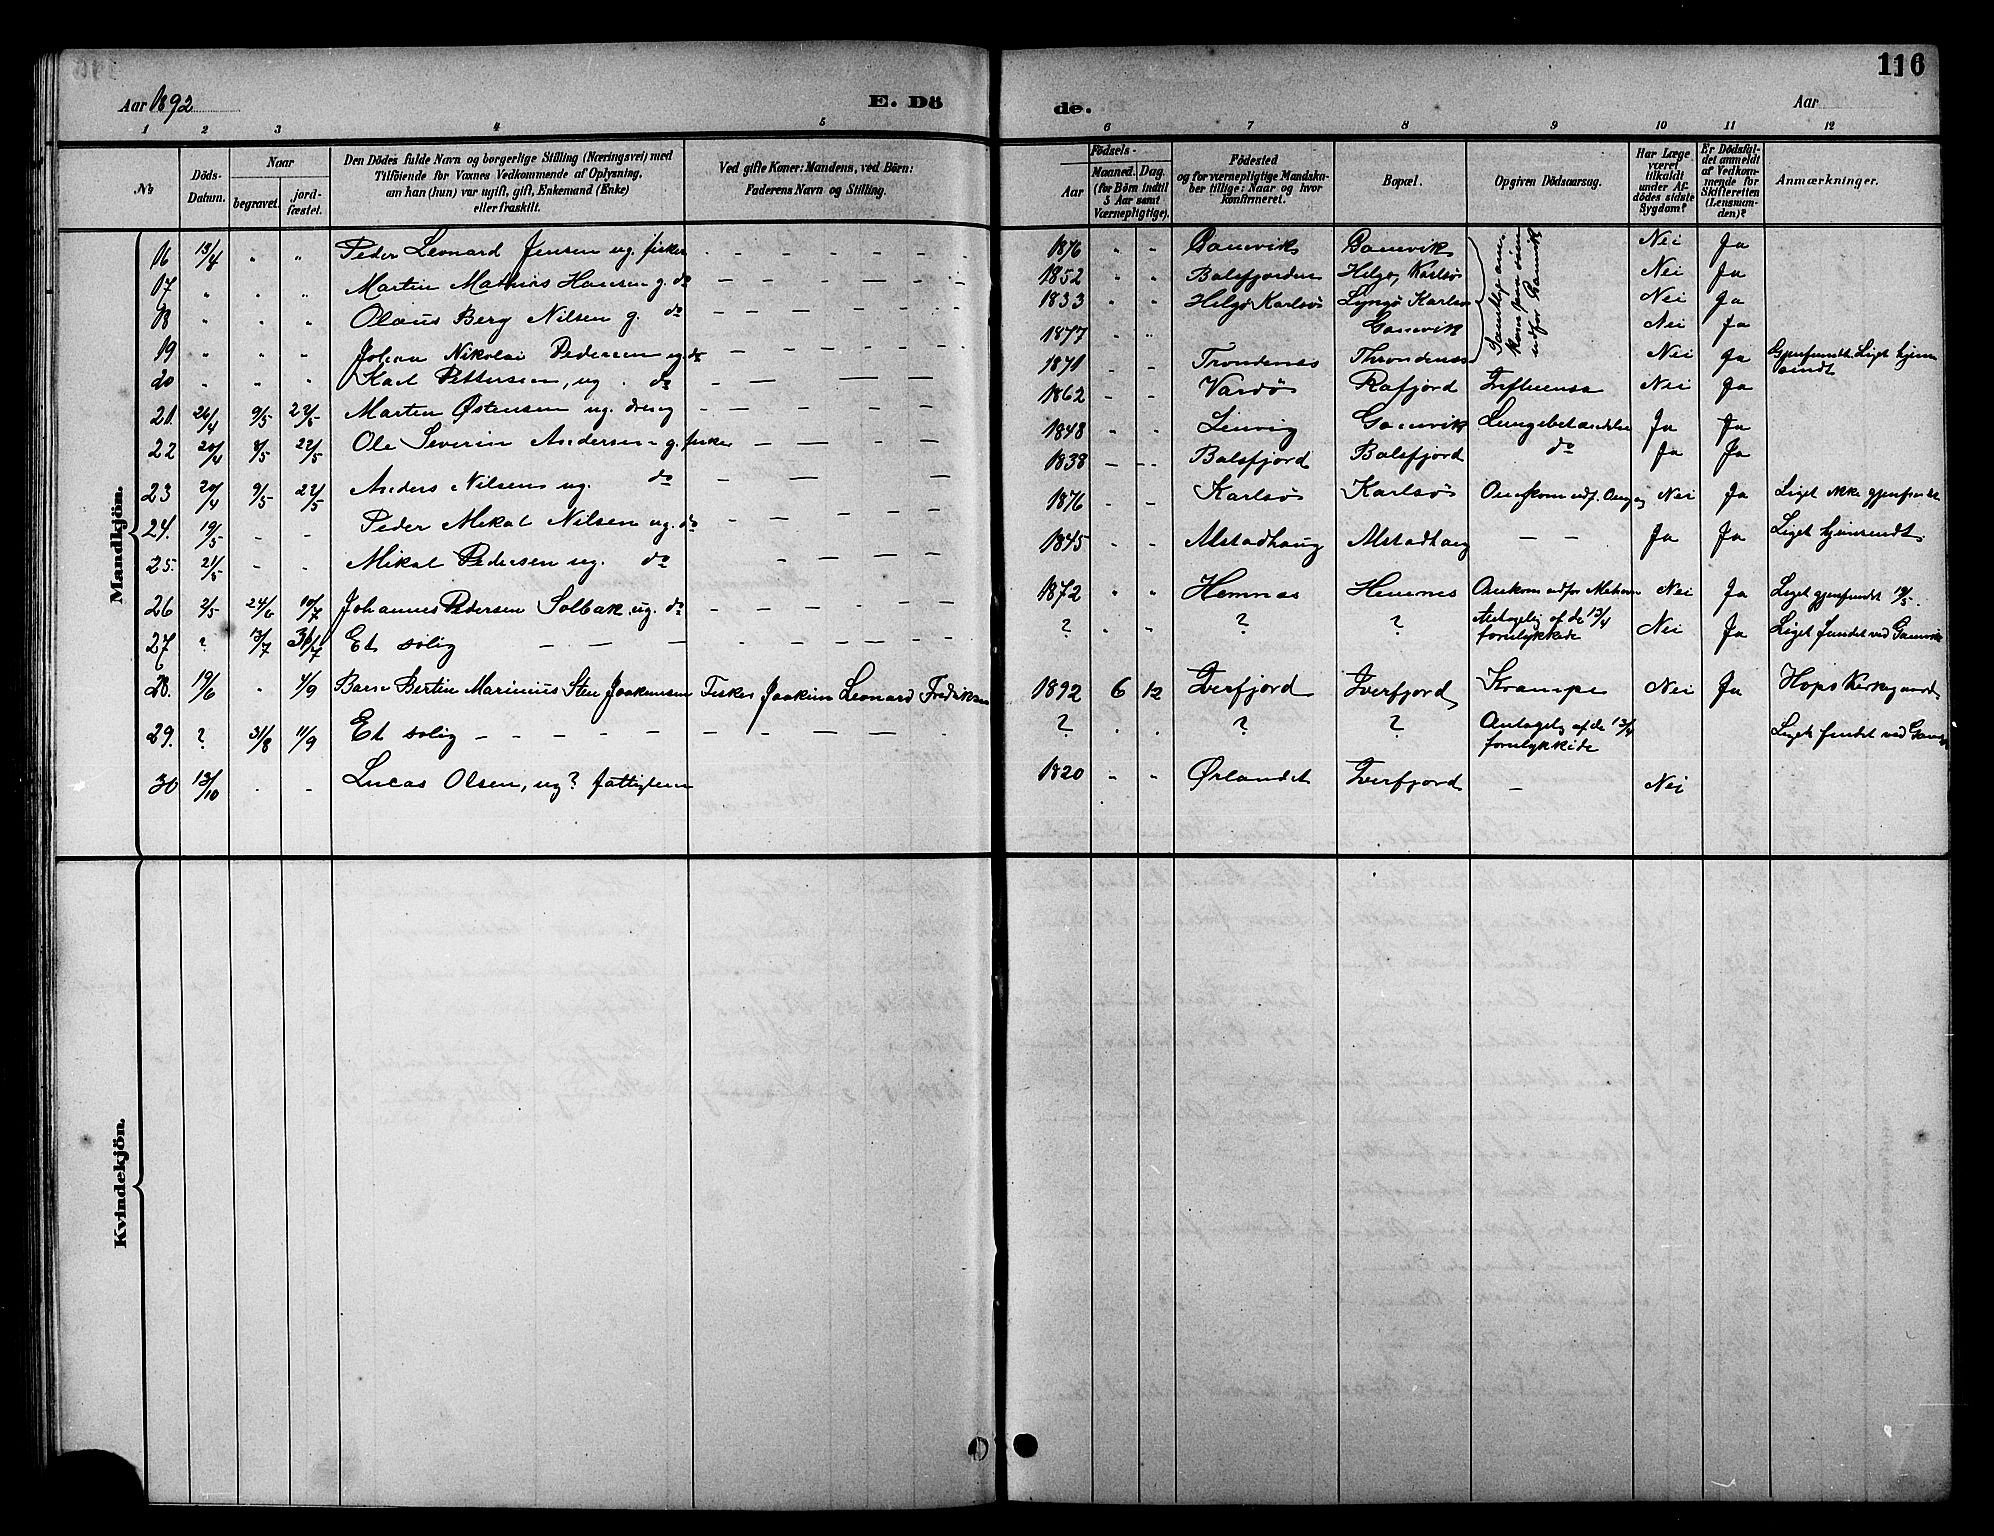 Aar 1892 E. Dö
1 2 3 4 5
No Döds-Datum. Naar begravet. jord-fæstet. Den Dödes fulde Navn og borgerlige Stilling (Næringsvei) med Tilföiende for Voxnes Vedkommende af Oplysning, om han (hun) var ugift, gift, Enkemand (Enke) eller fraskilt. Ved gifte Koner: Mandens, ved Börn: Faderens Navn og Stilling.
Mandkjön.
16 13/4 " " Peder Leonard Jensen ug. fisker - - -
17 " " " Martin Mathias Hansen g. do - - -
18 " " " Olaus Berg Nilsen g. do - - -
19 " " " Johan Nikolai Pedersen ug. do - - -
20 " " " Karl Pettersen, ug. do - - -
21. 26/4 9/5 22/5 Martin Østensen ug. dreng - - -
22 20/4 8/5 22/5 Ole Severin Andersen g. fisker - - -
23 20/4 9/5 22/5 Anders Nilsen ug. do - - -
24. 19/5 - - Peder Mikal Nilsen ug. do - - -
25. 21/5 - - Mikal Pedersen ug. do - - -
26 2/5 24/6 10/7 Johannes Pedersen Solbak, ug. do - - -
27 ? 13/7 31/7 Et solig - - -
28. 19/6 " 4/9 Barn Bertin Marinius Sten Joakimsen Fisker Joakim Leonard Fredriksen
29. ? 31/8 11/9 Et solig - - -
30 13/10 - - Lucas Olsen, ug? fattiglem
Kvindekjön.
de. Aar 116
6 7 8 9 10 11 12
Födsels- Aar Maaned. Dag. (for Börn indtil 3 Aar samt Værnepligtige). Födested og for værnepligtige Mandskaber tillige: Naar og hvor konfirmeret. Bopæl. Opgiven Dödsaarsag. Har Læge været tilkaldt under Afdödes sidste Sygdom? Er Dödsfaldet anmeldt af Vedkommende for Skifteretten (Lensmanden)? Anmærkninger.
1876 " " Gamvik Gamvik Samtlige omkom paa søen udfor Gamvik Nei Ja
1852 " " Balsfjorden Helgø, Karlsø Nei Ja
1833 " " Helgø Karlsø Lyngø Karlsø Nei Ja
1877 " " Gamvik Nei Ja
1871 - - Trondenæs Throndenæs Nei Ja Gjenfundt. Liget hjemsendt
1862 - - Vardø Rafjord Influensa Nei Ja
1848 - - Lenvig Gamvik Lungebetændelse Ja Ja
1838 - - Balsfjord Balsfjord do Ja Ja
1876 - - Karlsø Karlsø Omkom udf. Nei Ja Liget ikke gjenfundet
1845 - - Alstadhaug Alstadhaug - - Ja Ja Liget hjemsendt
1872 " " Hemnæs Hemnes Omkom udfor Mehavn Nei Ja Liget gjenfundt
? " " ? ? Antagelig af de 13/4 forulykkede Nei Ja Liget fundet ved Gamvik
1892 6 12 Iverfjord Iverfjord Krampe Nei Ja Hops Kirkegaard
? . . ? ? Antagelig af de 13/4 forulykkede Liget fundet ved Gamvik
1820 - " Ørlandet Iverfjord - Nei